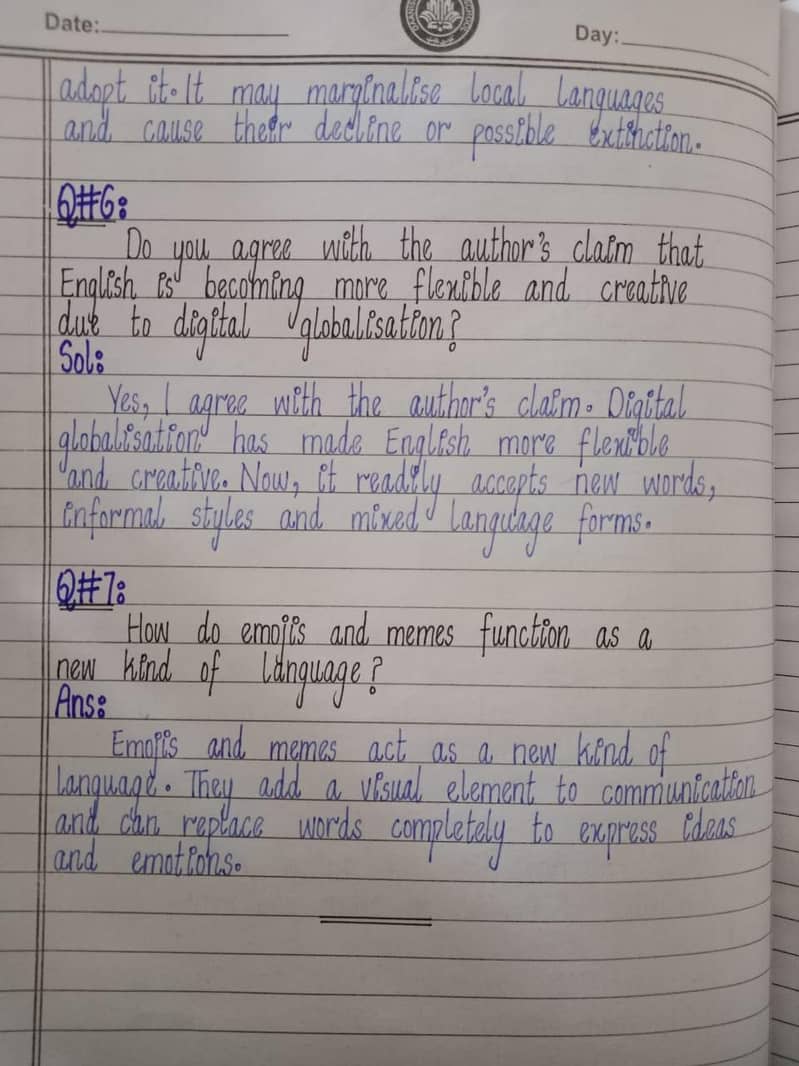 Date:
Day:
adopt it. It may marginalise local languages
and cause their decline or possible extinction.
Q#6:
Do you agree with the author's claim that
English is becoming more flexible and creative
due to digital globalisation?
Sol:
Yes, I agree with the author's claim. Digital
globalisation has made English more flexible
and creative. Now, it readily accepts new words,
informal styles and mixed language forms.
Q#7:
How do emojis and memes function as a
new kind of language?
Ans:
Emojis and memes act as a new kind of
language. They add a visual element to communication
and can replace words completely to express ideas
and emotions.